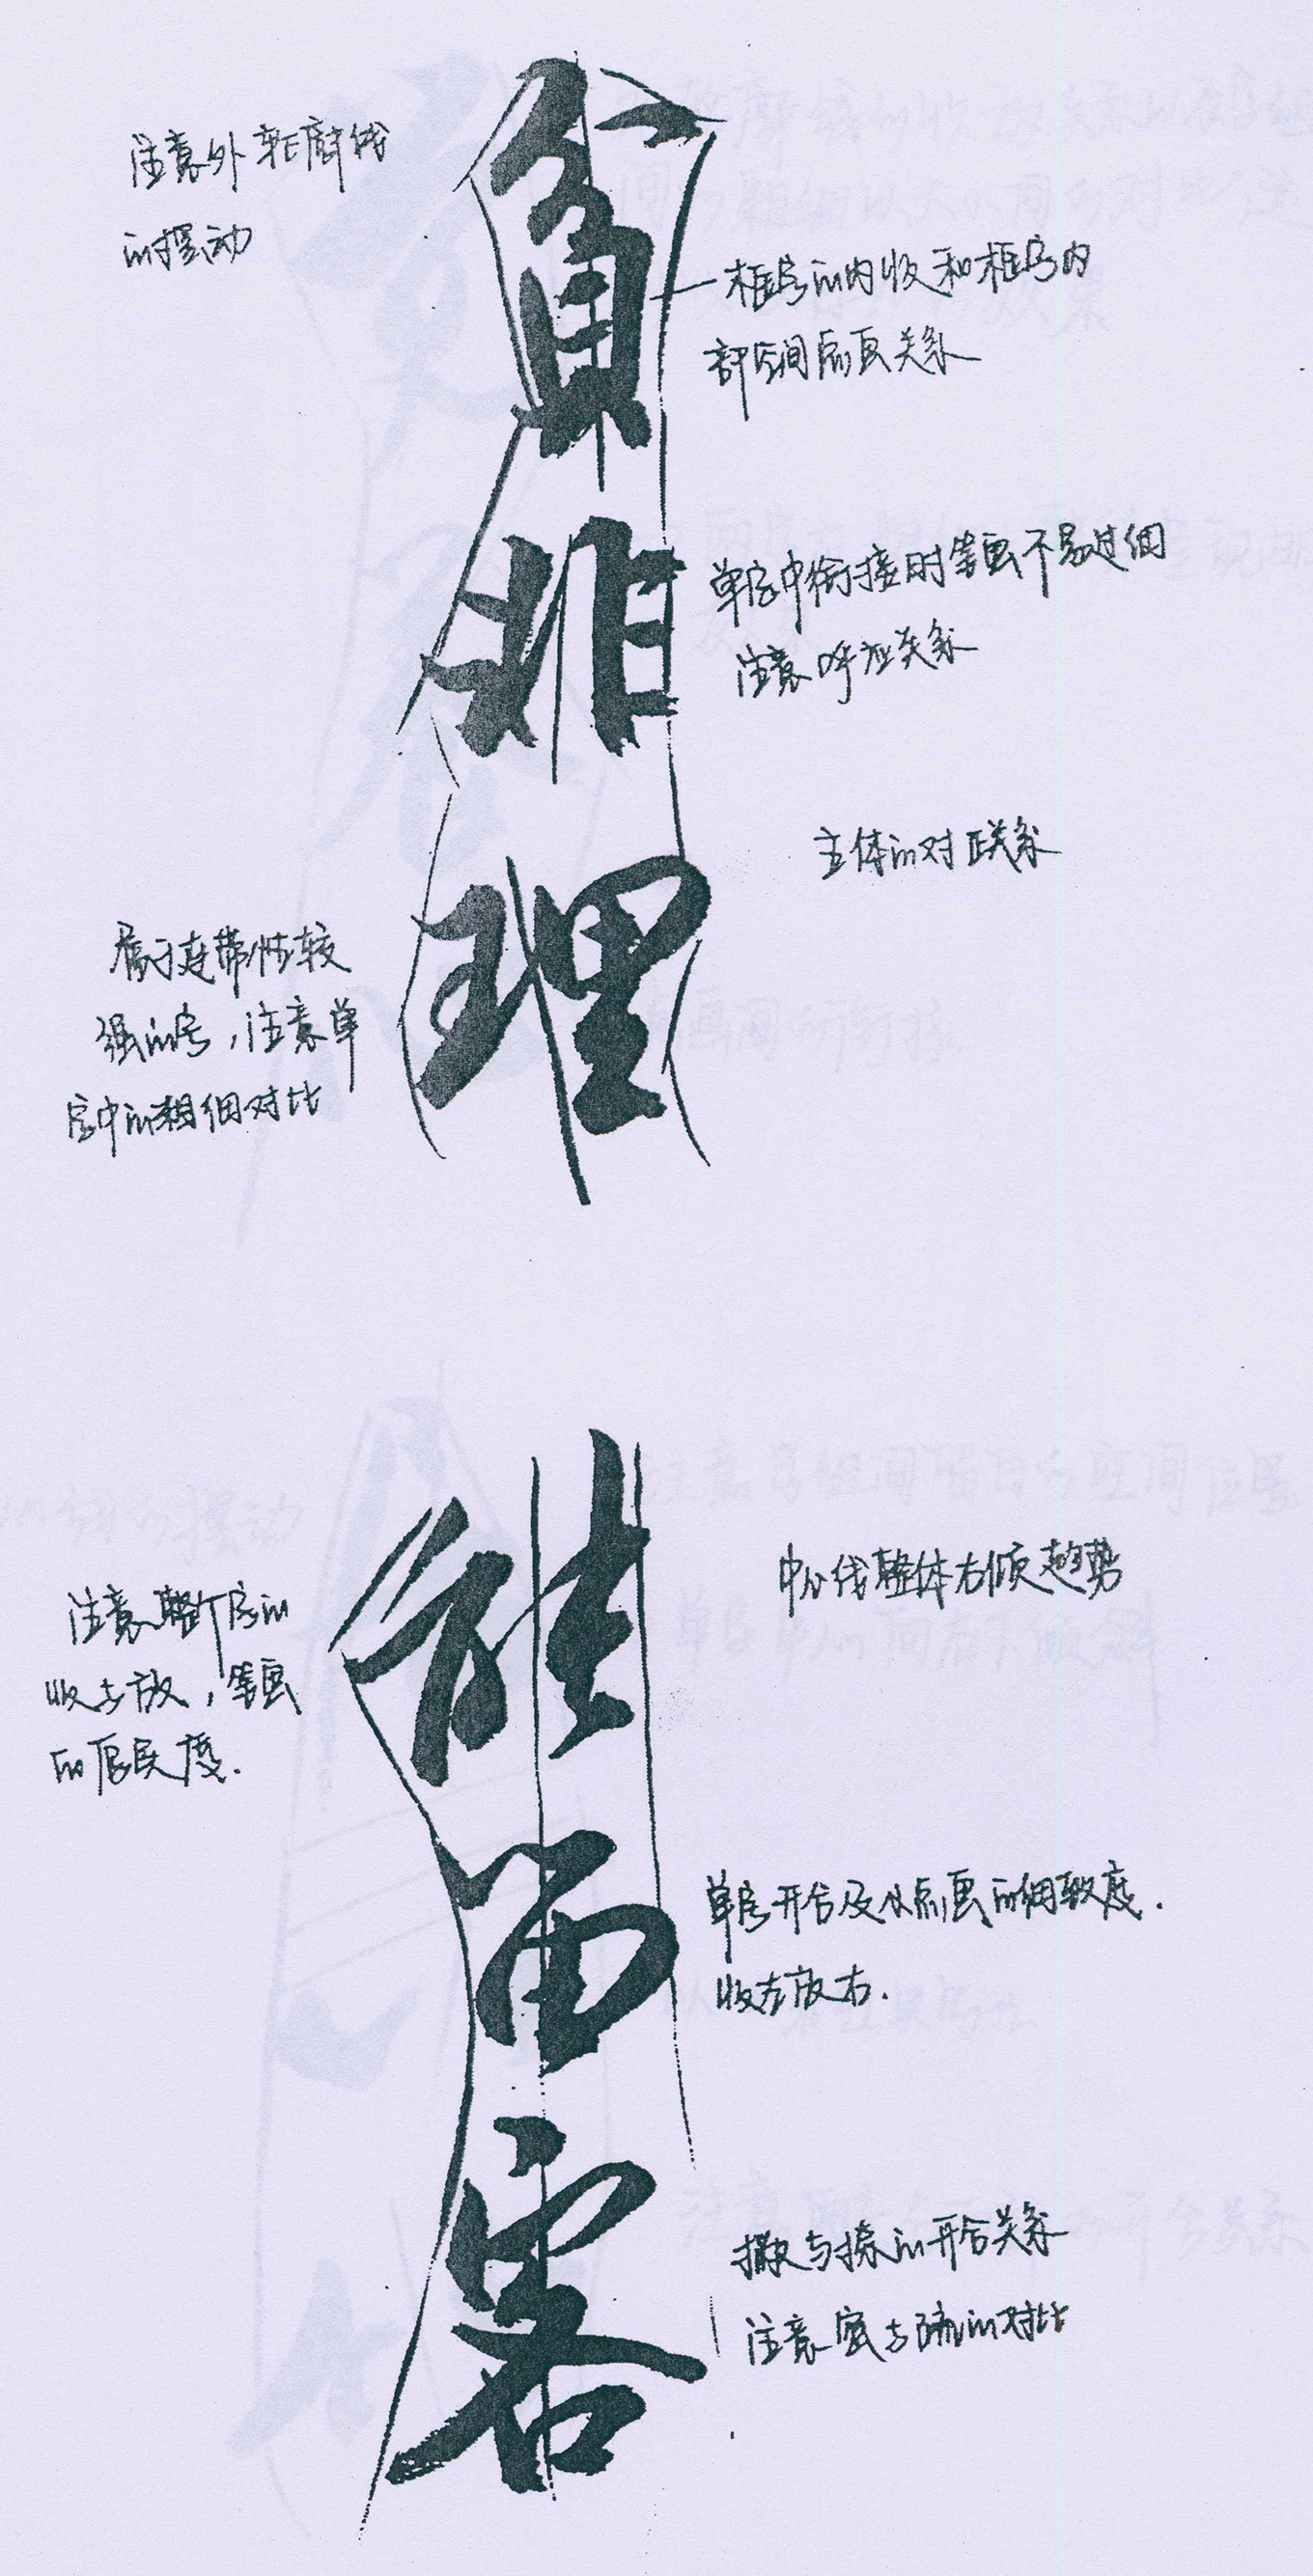 注意外轮廓线
的摆动
負
框字的内收和框字内
部空间点画关系
非
单字中衔接时笔画不易过细
注意呼应关系
理
主体的对正关系
属于连带性较
强的字，注意单
字中的粗细对比
能
中心线整体右倾趋势
注意整个字的
收与放，笔画
的厚度.
留
单字开合及从点画的细致度.
收左放右.
客
撇与捺的开合关系
注意密与疏的对比